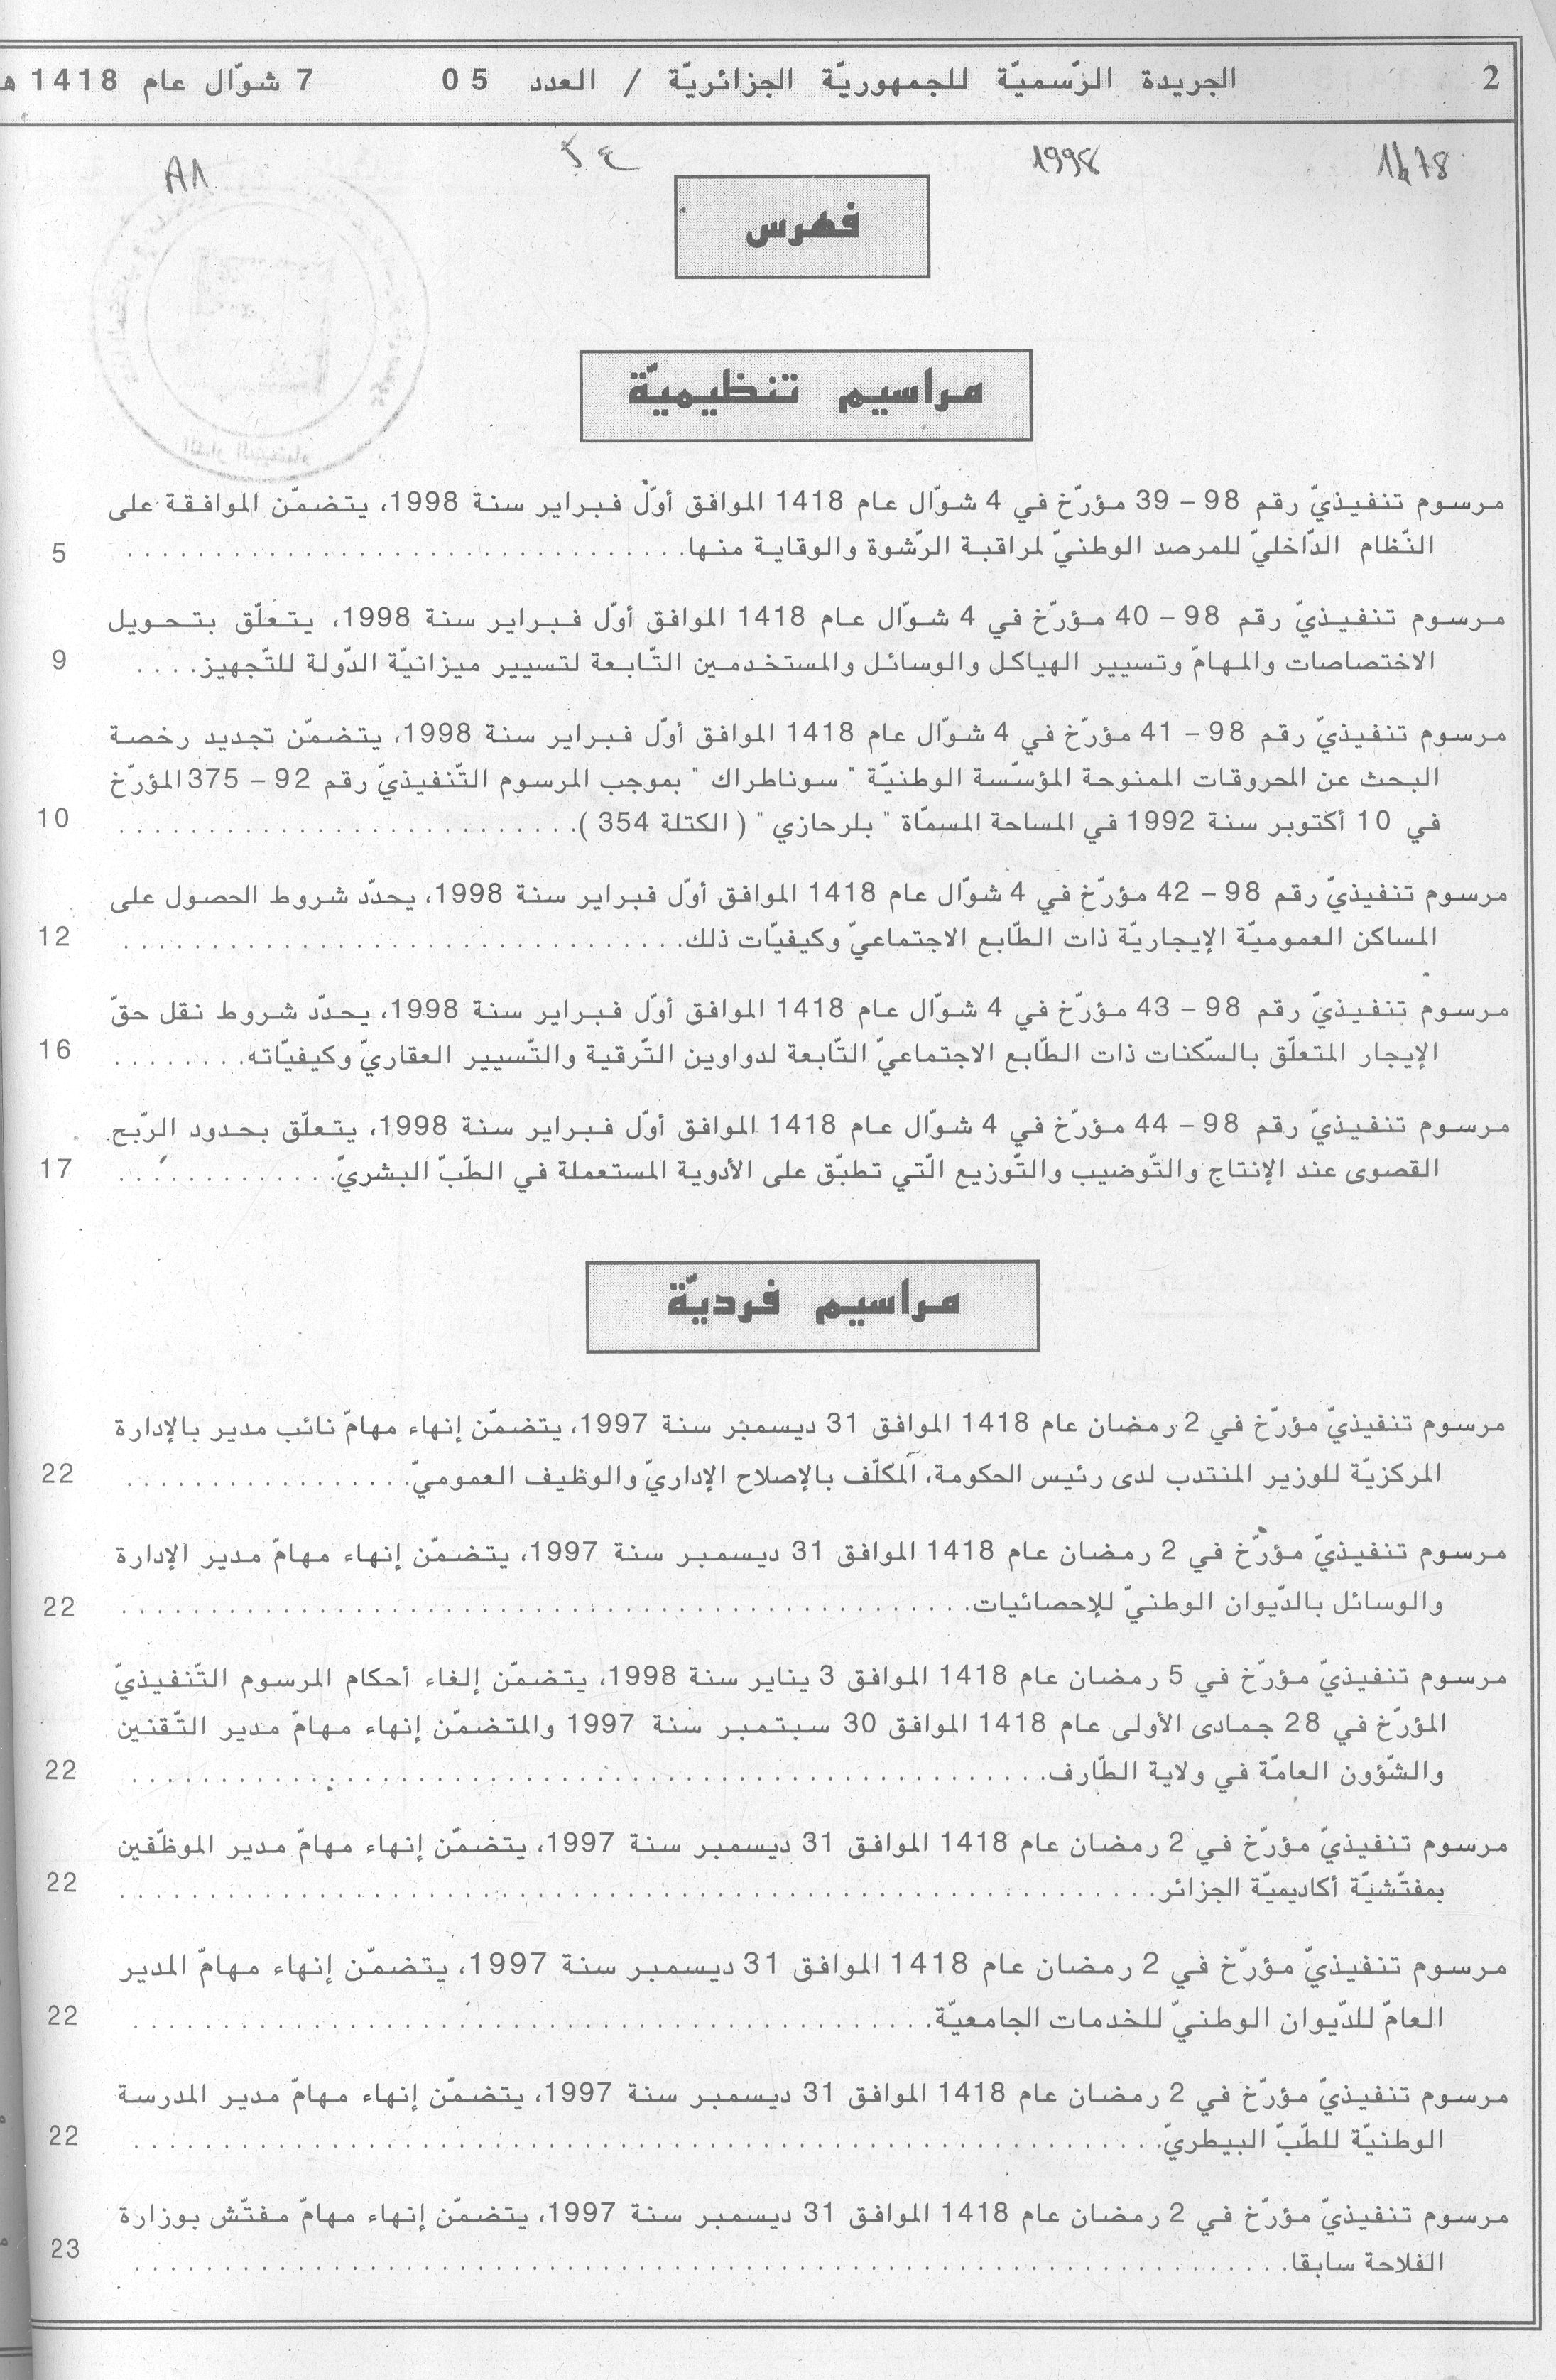 2 الجريدة الرّسميّة للجمهوريّة الجزائريّة / العدد 05 7 شوّال عام 1418 هـ
1998
A1
فهرس
مراسيم تنظيميّة
مرسوم تنفيذيّ رقم 98 – 39 مؤرّخ في 4 شوّال عام 1418 الموافق أوّل فبراير سنة 1998، يتضمّن الموافقة على
النّظام الدّاخليّ للمرصد الوطنيّ لمراقبة الرّشوة والوقاية منها. . . . . . . . . . 5
مرسوم تنفيذيّ رقم 98 – 40 مؤرّخ في 4 شوّال عام 1418 الموافق أوّل فبراير سنة 1998، يتعلّق بتحويل
الاختصاصات والمهامّ وتسيير الهياكل والوسائل والمستخدمين التّابعة لتسيير ميزانيّة الدّولة للتّجهيز. . . . 9
مرسوم تنفيذيّ رقم 98 – 41 مؤرّخ في 4 شوّال عام 1418 الموافق أوّل فبراير سنة 1998، يتضمّن تجديد رخصة
البحث عن المحروقات الممنوحة المؤسّسة الوطنيّة " سوناطراك " بموجب المرسوم التّنفيذيّ رقم 92 – 375 المؤرّخ
في 10 أكتوبر سنة 1992 في المساحة المسمّاة " بلرحازي " ( الكتلة 354 ). . . . . . . . . . 10
مرسوم تنفيذيّ رقم 98 – 42 مؤرّخ في 4 شوّال عام 1418 الموافق أوّل فبراير سنة 1998، يحدّد شروط الحصول على
المساكن العموميّة الإيجاريّة ذات الطّابع الاجتماعيّ وكيفيّات ذلك. . . . . . . . . . 12
مرسوم تنفيذيّ رقم 98 – 43 مؤرّخ في 4 شوّال عام 1418 الموافق أوّل فبراير سنة 1998، يحدّد شروط نقل حقّ
الإيجار المتعلّق بالسّكنات ذات الطّابع الاجتماعيّ التّابعة لدواوين التّرقية والتّسيير العقاريّ وكيفيّاته. . . . . . . . 16
مرسوم تنفيذيّ رقم 98 – 44 مؤرّخ في 4 شوّال عام 1418 الموافق أوّل فبراير سنة 1998، يتعلّق بحدود الرّبح
القصوى عند الإنتاج والتّوضيب والتّوزيع الّتي تطبّق على الأدوية المستعملة في الطّبّ البشريّ. . . . . . . . . . 17
مراسيم فرديّة
مرسوم تنفيذيّ مؤرّخ في 2 رمضان عام 1418 الموافق 31 ديسمبر سنة 1997، يتضمّن إنهاء مهامّ نائب مدير بالإدارة
المركزيّة للوزير المنتدب لدى رئيس الحكومة، المكلّف بالإصلاح الإداريّ والوظيف العموميّ. . . . . . . . . . 22
مرسوم تنفيذيّ مؤرّخ في 2 رمضان عام 1418 الموافق 31 ديسمبر سنة 1997، يتضمّن إنهاء مهامّ مدير الإدارة
والوسائل بالدّيوان الوطنيّ للإحصائيات. . . . . . . . . . 22
مرسوم تنفيذيّ مؤرّخ في 5 رمضان عام 1418 الموافق 3 يناير سنة 1998، يتضمّن إلغاء أحكام المرسوم التّنفيذيّ
المؤرّخ في 28 جمادى الأولى عام 1418 الموافق 30 سبتمبر سنة 1997 والمتضمّن إنهاء مهامّ مدير التّقنين
والشّؤون العامّة في ولاية الطّارف. . . . . . . . . . 22
مرسوم تنفيذيّ مؤرّخ في 2 رمضان عام 1418 الموافق 31 ديسمبر سنة 1997، يتضمّن إنهاء مهامّ مدير الموظّفين
بمفتّشيّة أكاديميّة الجزائر. . . . . . . . . . 22
مرسوم تنفيذيّ مؤرّخ في 2 رمضان عام 1418 الموافق 31 ديسمبر سنة 1997، يتضمّن إنهاء مهامّ المدير
العامّ للدّيوان الوطنيّ للخدمات الجامعيّة. . . . . . . . . . 22
مرسوم تنفيذيّ مؤرّخ في 2 رمضان عام 1418 الموافق 31 ديسمبر سنة 1997، يتضمّن إنهاء مهامّ مدير المدرسة
الوطنيّة للطّبّ البيطريّ. . . . . . . . . . 22
مرسوم تنفيذيّ مؤرّخ في 2 رمضان عام 1418 الموافق 31 ديسمبر سنة 1997، يتضمّن إنهاء مهامّ مفتّش بوزارة
الفلاحة سابقا. . . . . . . . . . 23